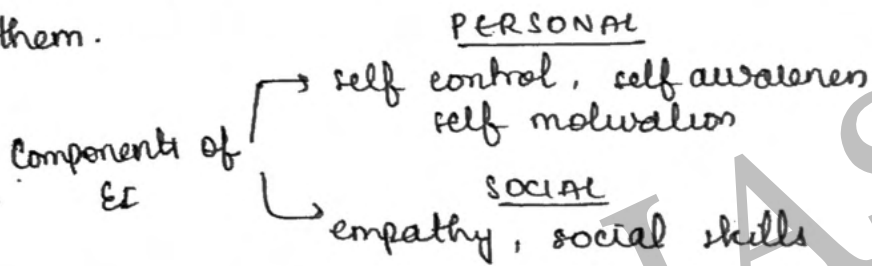 them.
PERSONAL
self control, self awareness
self motivation
Components of
EI
SOCIAL
empathy, social skills
IAS